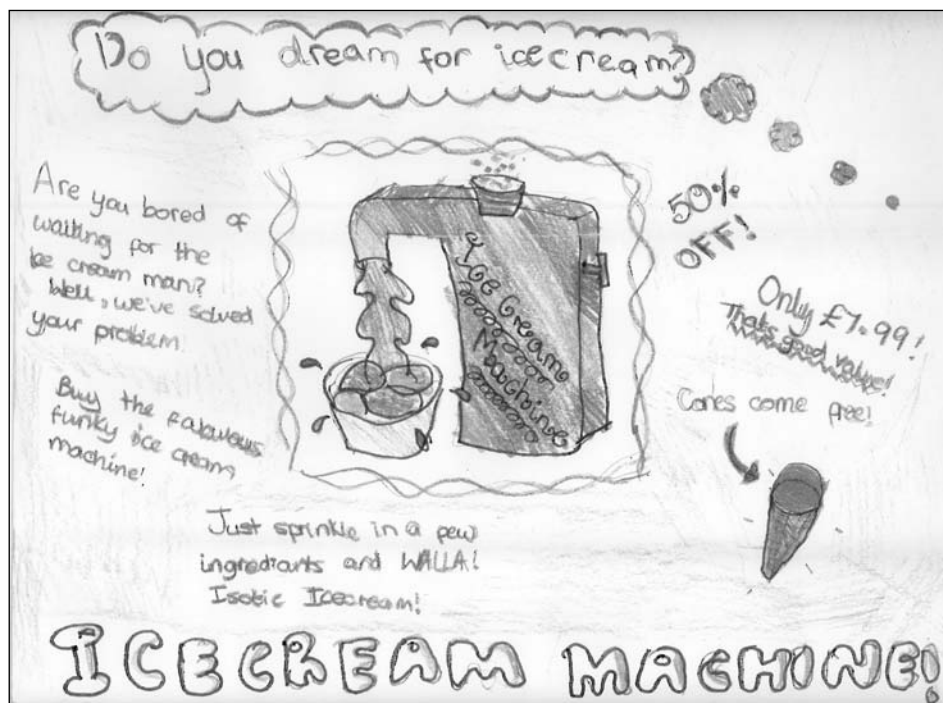 Do you dream for icecream?
Are you bored of
waiting for the
ice cream man?
Well, we've solved
your problem!
Buy the fabulous
funky ice cream
machine!
Ice Cream
Machine
50%
OFF!
Only £7.99!
Thats good value!
Cones come free!
Just sprinkle in a few
ingrediants and WALLA!
Isotic Icecream!
ICECREAM MACHINE!